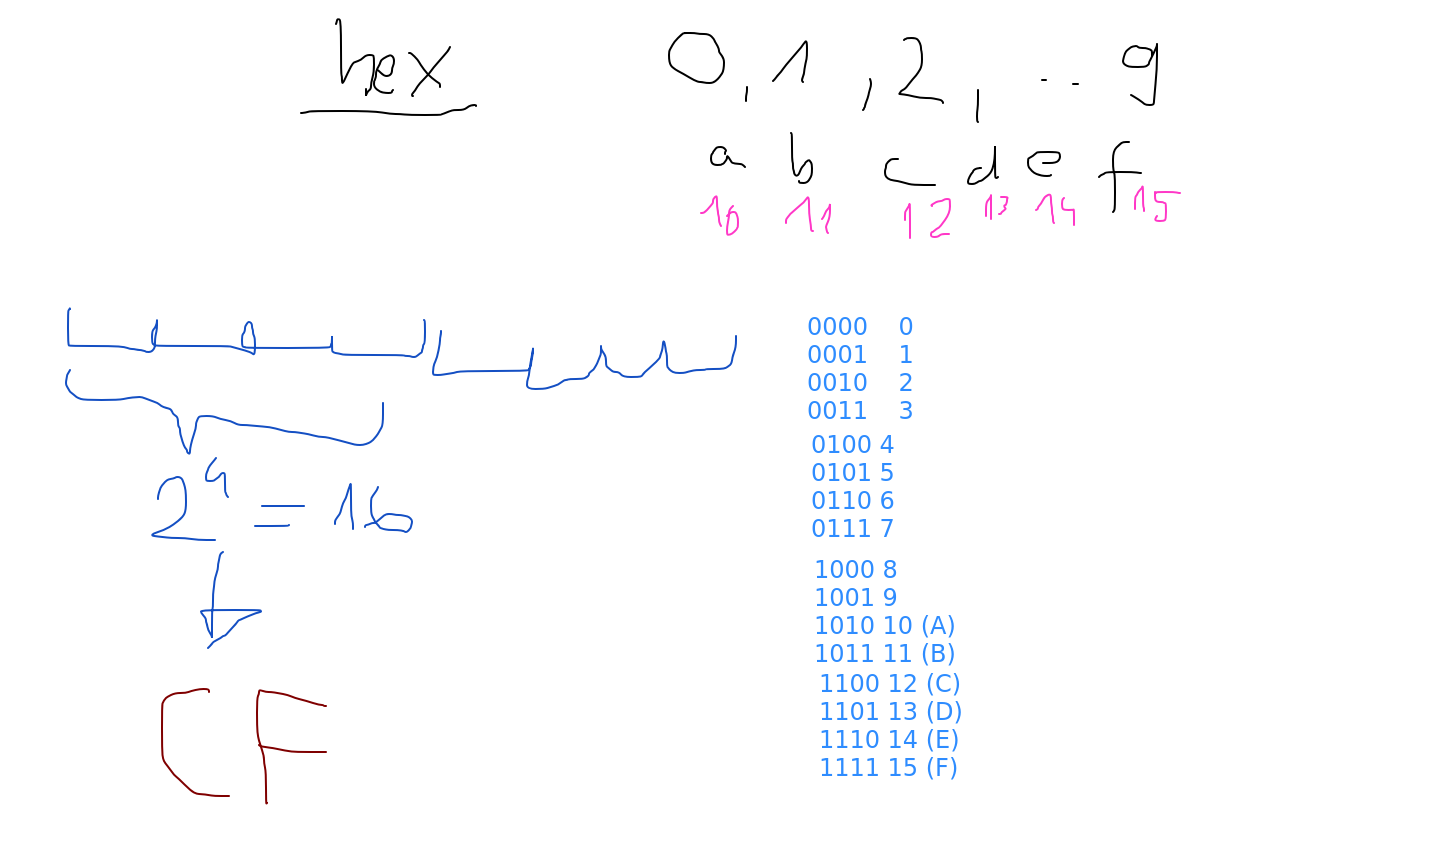 hex 0, 1, 2, .. 9
a b c d e f
10 11 12 13 14 15
0000 0
0001 1
0010 2
0011 3
0100 4
0101 5
0110 6
0111 7
1000 8
1001 9
1010 10 (A)
1011 11 (B)
1100 12 (C)
1101 13 (D)
1110 14 (E)
1111 15 (F)
2⁴ = 16
CF